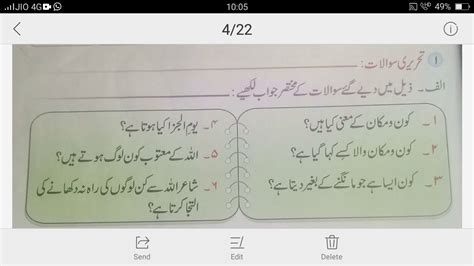 JIO 4G 10:05 49%
4/22
۱ تحریری سوالات:
الف۔ ذیل میں دیے گئے سوالات کے مختصر جواب لکھیے:
۱۔ کون و مکان کے معنی کیا ہیں؟
۲۔ کون و مکان والا کسے کہا گیا ہے؟
۳۔ کون ایسا ہے جو مانگنے کے بغیر دیتا ہے؟
۴۔ یوم الجزا کیا ہوتا ہے؟
۵۔ اللہ کے معتوب کون لوگ ہوتے ہیں؟
۶۔ شاعر اللہ سے کن لوگوں کی راہ نہ دکھانے کی
التجا کرتا ہے؟
Send Edit Delete